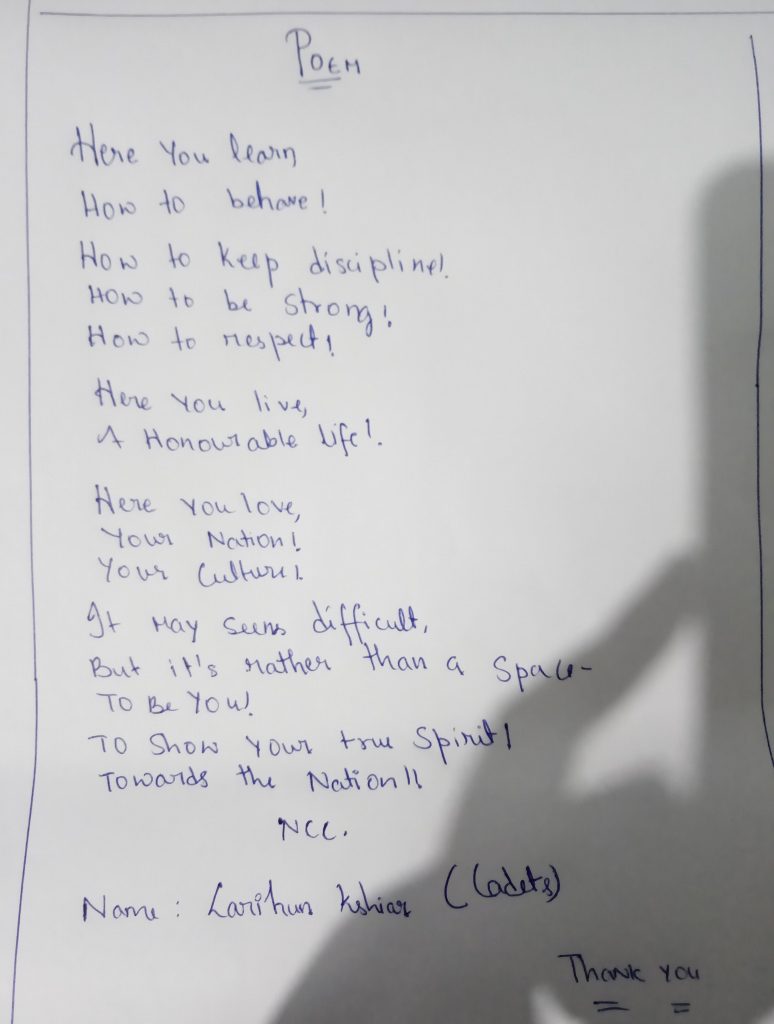 POEM
Here You learn
How to behave!
How to keep discipline!.
How to be strong!
How to respect!
Here You live,
A Honourable life!.
Here You love,
Your Nation!
Your Culture!.
It May seems difficult,
But it's rather than a Space-
To Be You!
To Show Your true Spirit!
Towards the Nation!!
NCC.
Name : Larihun Kshiar (Cadets)
Thank You